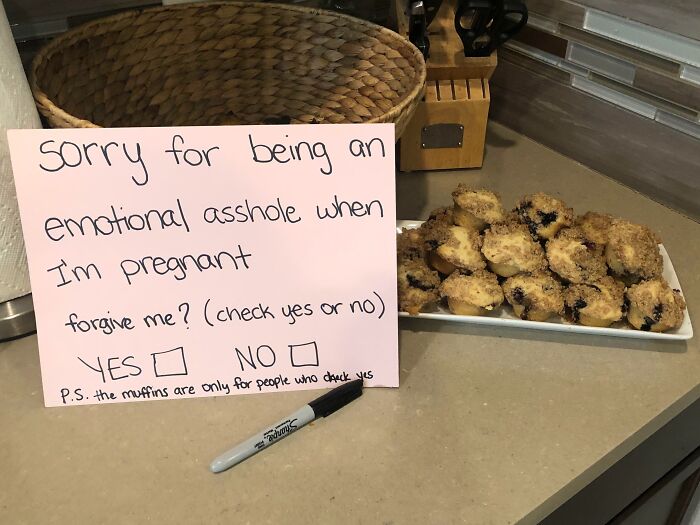 Sorry for being an
emotional asshole when
I'm pregnant
forgive me? (check yes or no)
YES NO
P.S. the muffins are only for people who check yes
Sharpie